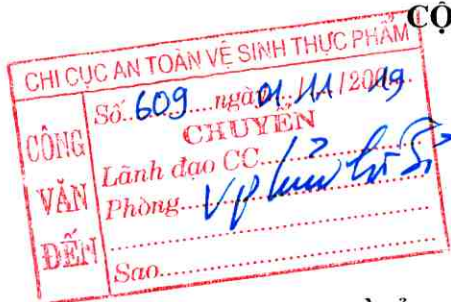 CỘ
CHI CỤC AN TOÀN VỆ SINH THỰC PHẨM
CÔNG VĂN ĐẾN
Số..609....ngày.01./.11./200..19
CHUYỂN
Lãnh đạo CC..................
Phòng...VP lưu hồ sơ
..............................
Sao...........................